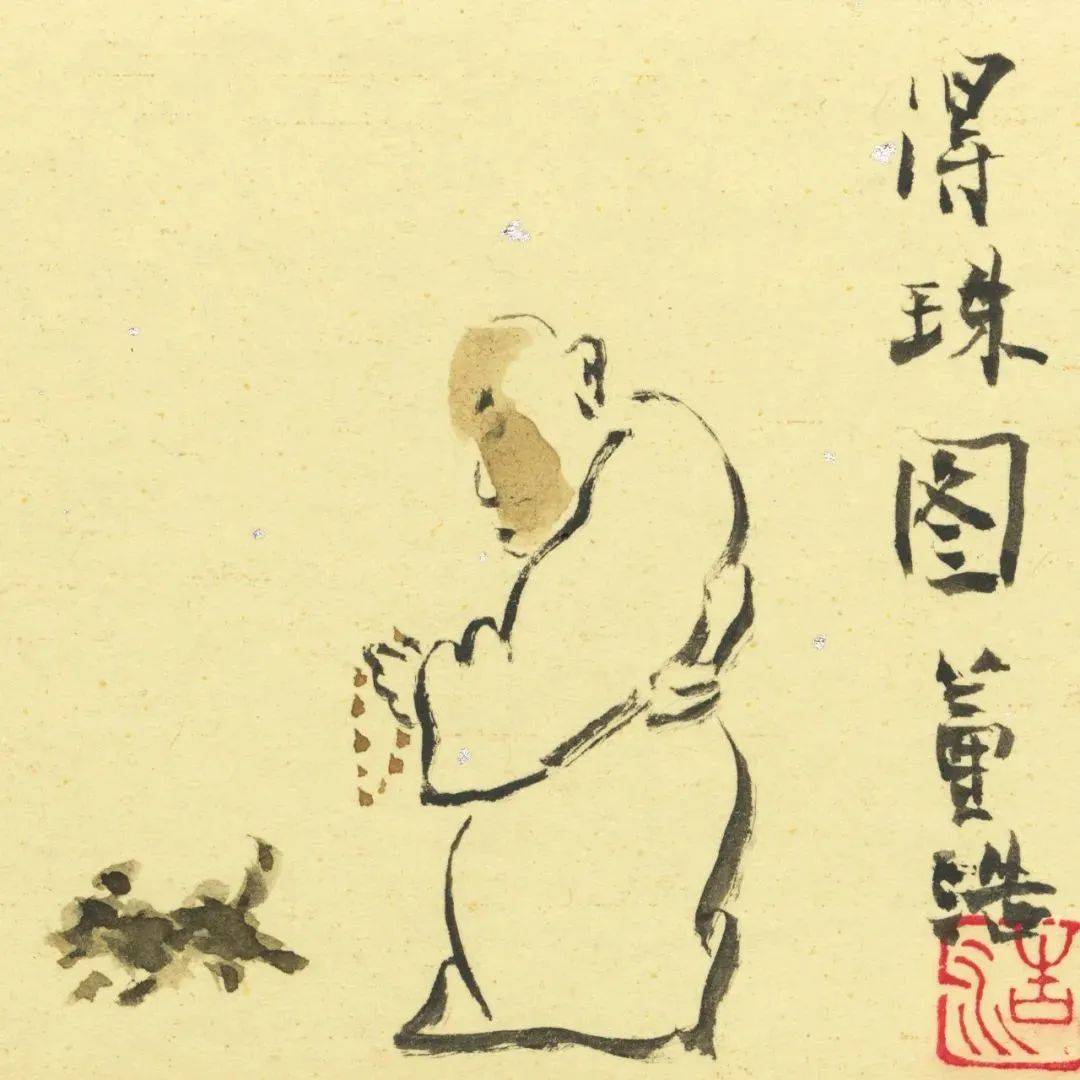 得珠图董浩
浩